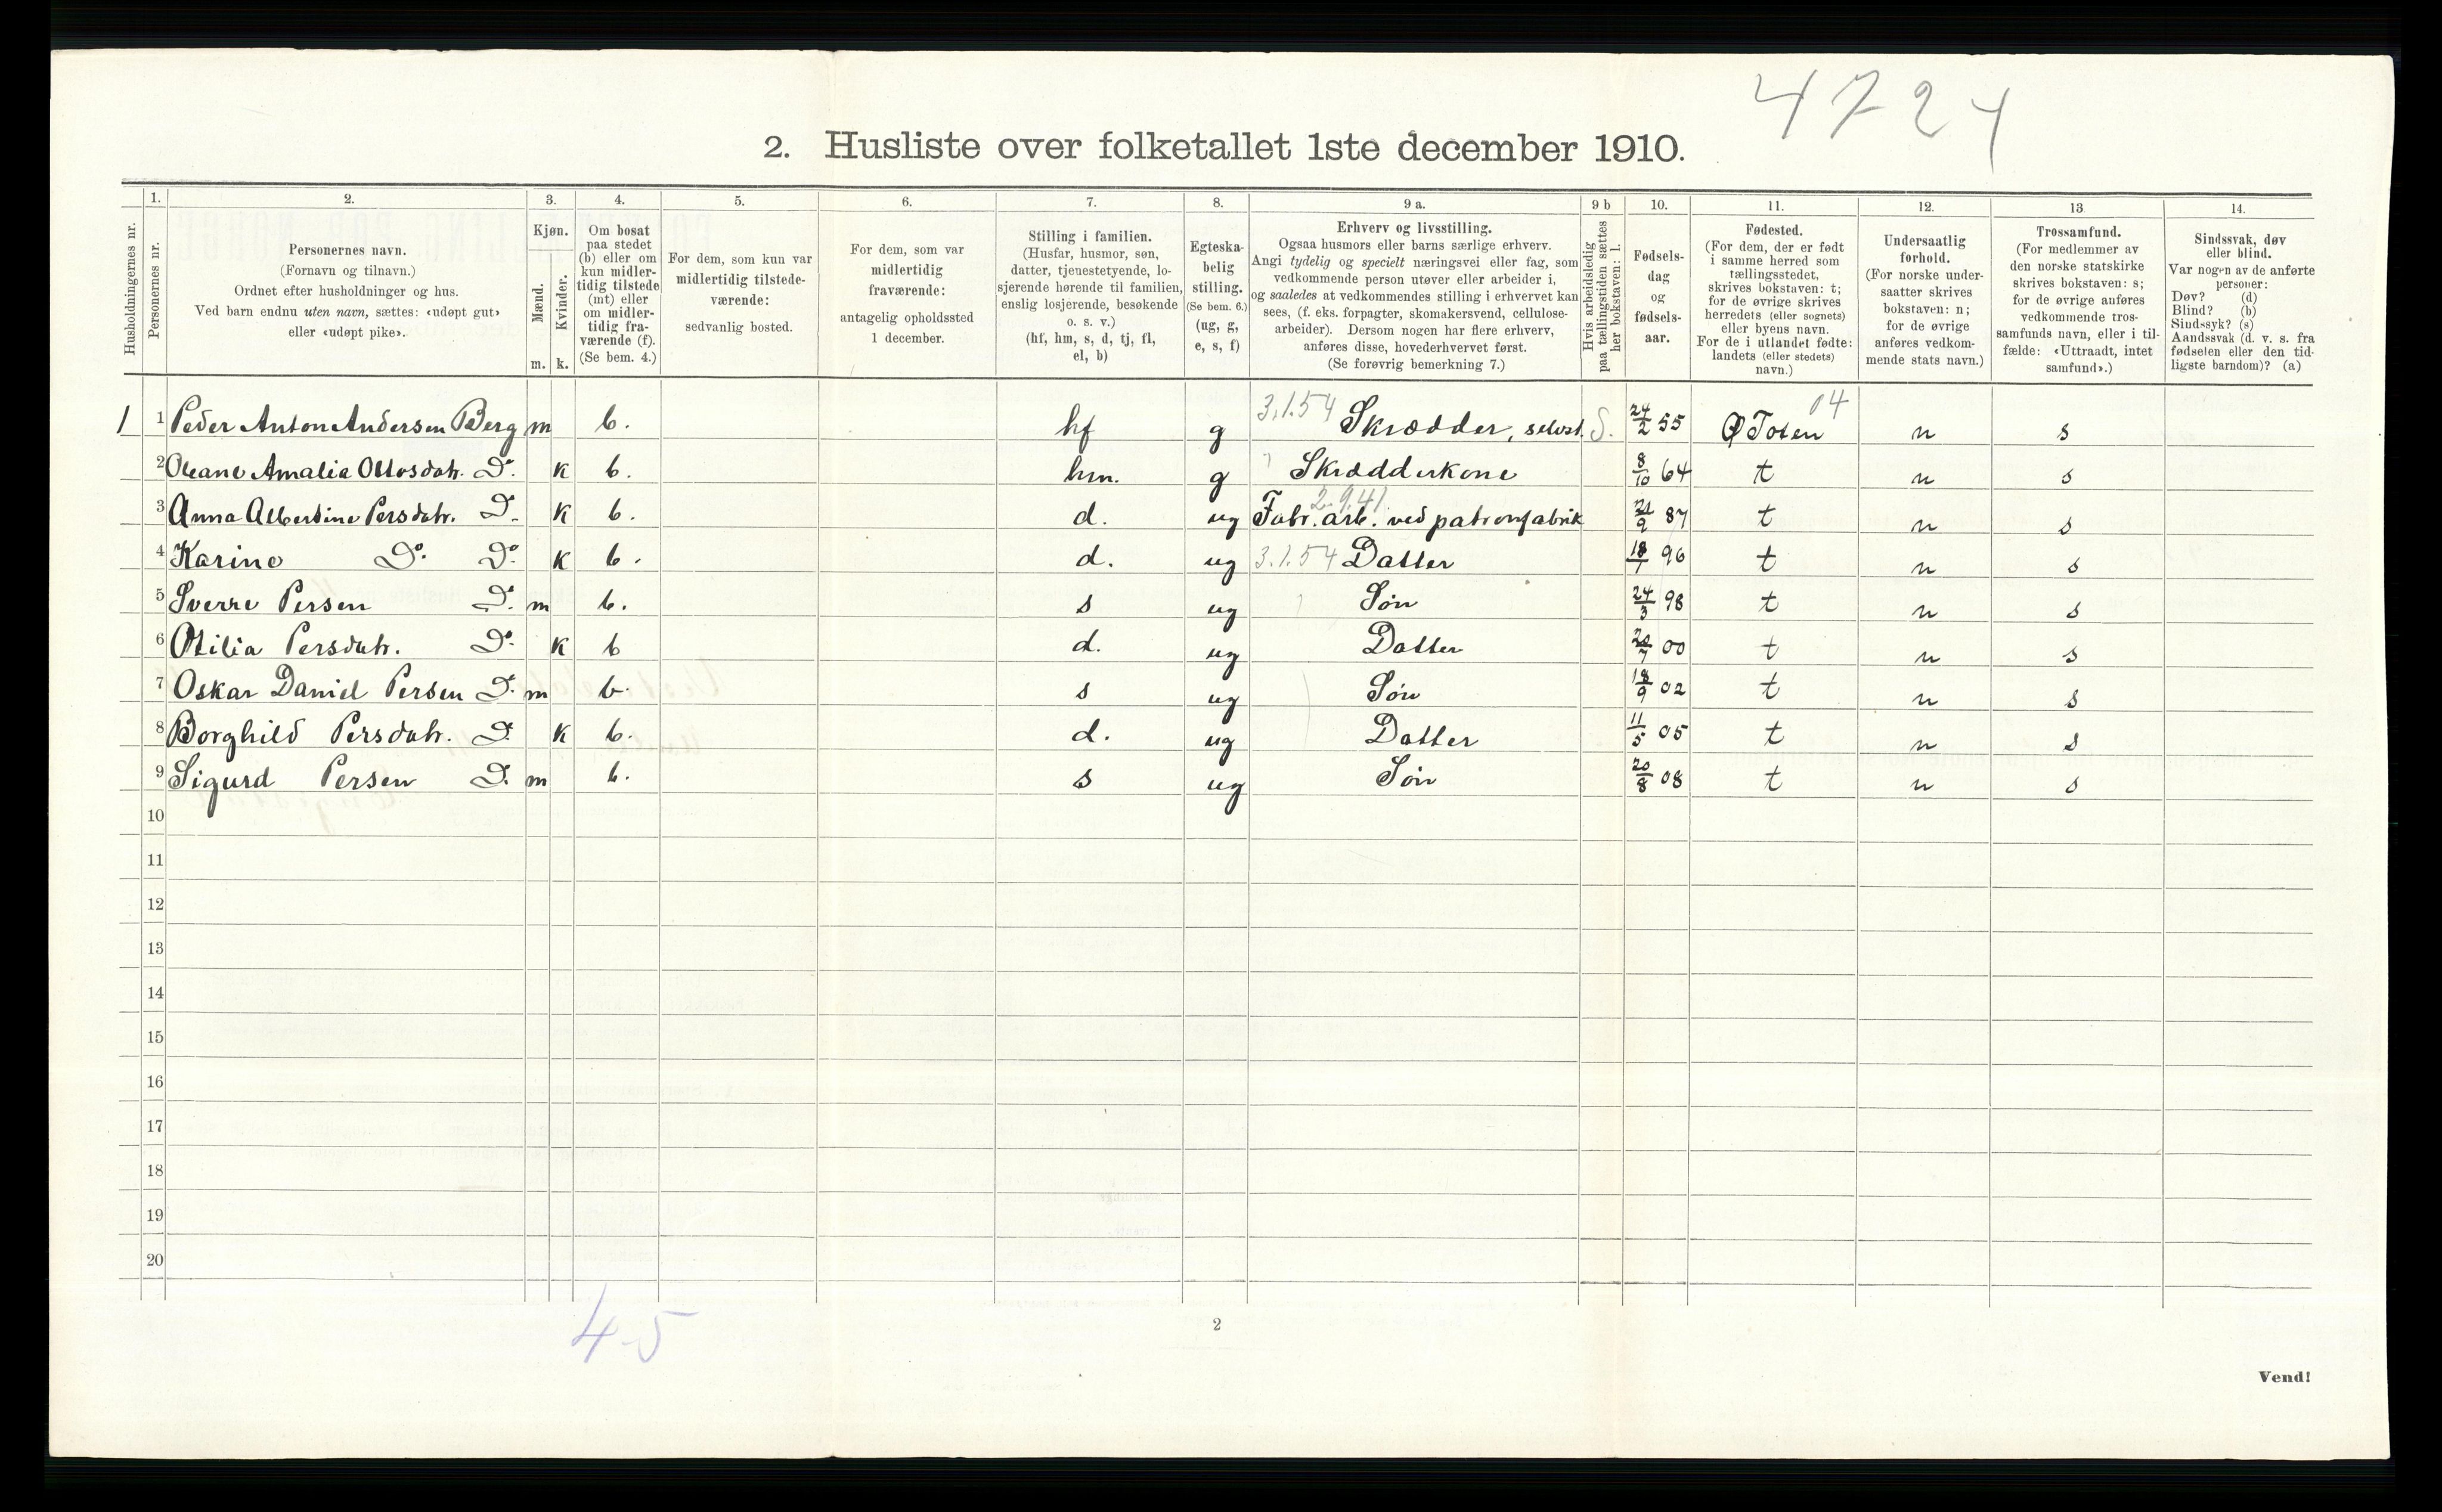 4724
2. Husliste over folketallet 1ste december 1910.
Husholdningernes nr.
1.
Personernes nr.
2.
Personernes navn.
(Fornavn og tilnavn.)
Ordnet efter husholdninger og hus.
Ved barn endnu uten navn, sættes: «udøpt gut»
eller «udøpt pike».
3.
Kjøn.
Mænd.
Kvinder.
m. k.
4.
Om bosat
paa stedet
(b) eller om
kun midler-
tidig tilstede
(mt) eller
om midler-
tidig fra-
værende (f).
(Se bem. 4.)
5.
For dem, som kun var
midlertidig tilstede-
værende:
sedvanlig bosted.
6.
For dem, som var
midlertidig
fraværende:
antagelig opholdssted
1 december.
7.
Stilling i familien.
(Husfar, husmor, søn,
datter, tjenestetyende, lo-
sjerende hørende til familien,
enslig losjerende, besøkende
o. s. v.)
(hf, hm, s, d, tj, fl,
el, b)
8.
Egteska-
belig
stilling.
(Se bem. 6.)
(ug, g,
e, s, f)
9 a.
Erhverv og livsstilling.
Ogsaa husmors eller barns særlige erhverv.
Angi tydelig og specielt næringsvei eller fag, som
vedkommende person utøver eller arbeider i,
og saaledes at vedkommendes stilling i erhvervet kan
sees, (f. eks. forpagter, skomakersvend, cellulose-
arbeider). Dersom nogen har flere erhverv,
anføres disse, hovederhvervet først.
(Se forøvrig bemerkning 7.)
9 b
Hvis arbeidsledig
paa tællingstiden sættes
her bokstaven: l.
10.
Fødsels-
dag
og
fødsels-
aar.
11.
Fødested.
(For dem, der er født
i samme herred som
tællingsstedet,
skrives bokstaven: t;
for de øvrige skrives
herredets (eller sognets)
eller byens navn.
For de i utlandet fødte:
landets (eller stedets)
navn.)
12.
Undersaatlig
forhold.
(For norske under-
saatter skrives
bokstaven: n;
for de øvrige
anføres vedkom-
mende stats navn.)
13
Trossamfund.
(For medlemmer av
den norske statskirke
skrives bokstaven: s;
for de øvrige anføres
vedkommende tros-
samfunds navn, eller i til-
fælde: «Uttraadt, intet
samfund».)
14.
Sindssvak, døv
eller blind.
Var nogen av de anførte
personer:
Døv? (d)
Blind? (b)
Sindssyk? (s)
Aandssvak (d. v. s. fra
fødselen eller den tid-
ligste barndom)? (a)
3.1.54 04
1 1 Peder Anton Andersen Berg m b. hf g Skrædder, selvst. S. 24/2 55 Ø Toten n s
2 Oleane Amalia Ottosdatr. Do. k b. hm. g Skrædderkone 8/10 64 t n s
2.9.41
3 Anna Albertine Persdatr. Do. k b. d. ug Fabr. arb. ved patronfabrik 21/9 87 t n s
4 Karine Do. Do. k b. d. ug 3.1.54 Datter 18/1 96 t n s
5 Sverre Persen Do. m b. s ug Søn 24/3 98 t n s
6 Otilia Persdatr. Do. k b d. ug Datter 20/7 00 t n s
7 Oskar Daniel Persen Do. m b. s ug Søn 18/9 02 t n s
8 Borghild Persdatr. Do. k b. d. ug Datter 11/5 05 t n s
9 Sigurd Persen Do. m b. s ug Søn 20/8 08 t n s
10
11
12
13
14
15
16
17
18
19
20
4-5
2
Vend!